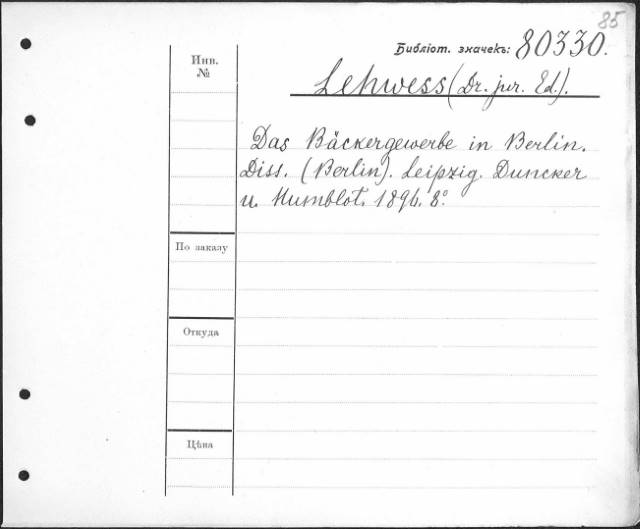 85
Библіот. значекъ: 80330.
Инв.
№
Lehwess (Dr. jur. Ed.).
Das Bäckergewerbe in Berlin.
Diss. (Berlin). Leipzig. Duncker
u. Humblot. 1894. 8°.
По заказу
Откуда
Цѣна